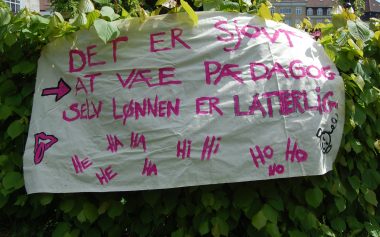 DET ER SJOVT
AT VÆE PÆDAGOG
SELV LØNNEN ER LATTERLIG
HA HA HI HI HO HO
HE HE HA HO